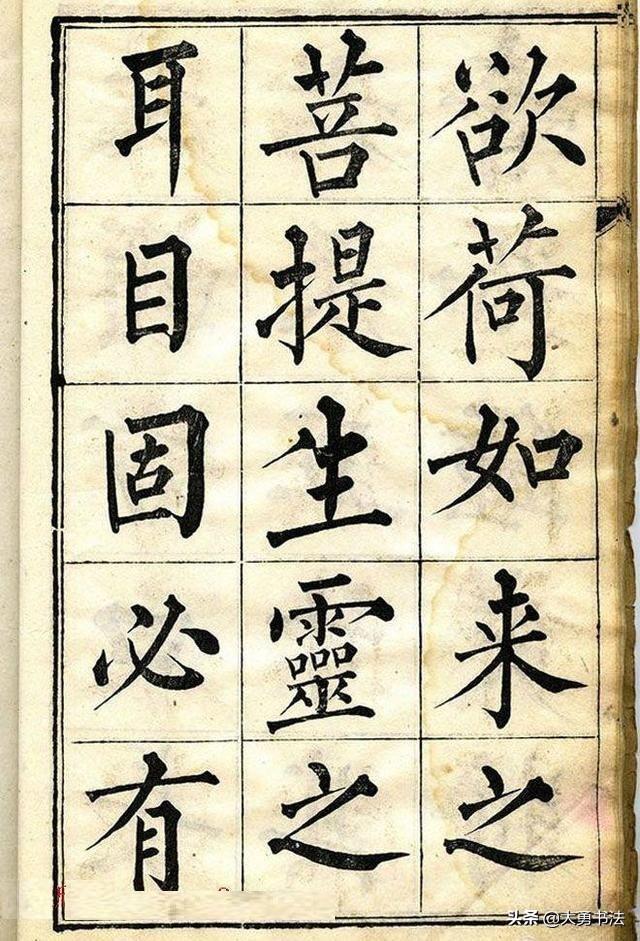 欲荷如来之
菩提生靈之
耳目固必有
头条 @大勇书法